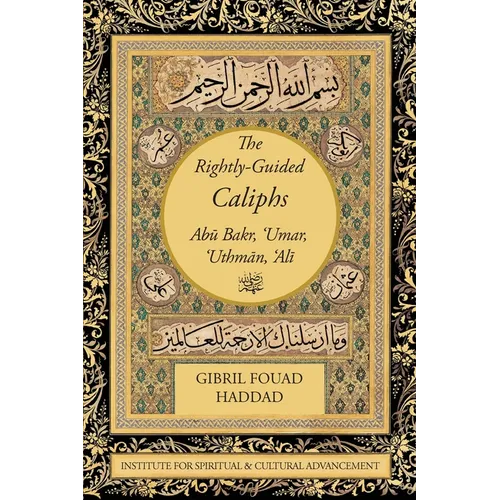 بسم الله الرحمن الرحيم
ابوبكر
عمر
The
Rightly-Guided
Caliphs
Abū Bakr, ʿUmar,
ʿUthmān, ʿAlī
رضي الله عنهم
عثمان
علي
وما ارسلناك الا رحمة للعالمين
GIBRIL FOUAD
HADDAD
INSTITUTE FOR SPIRITUAL & CULTURAL ADVANCEMENT